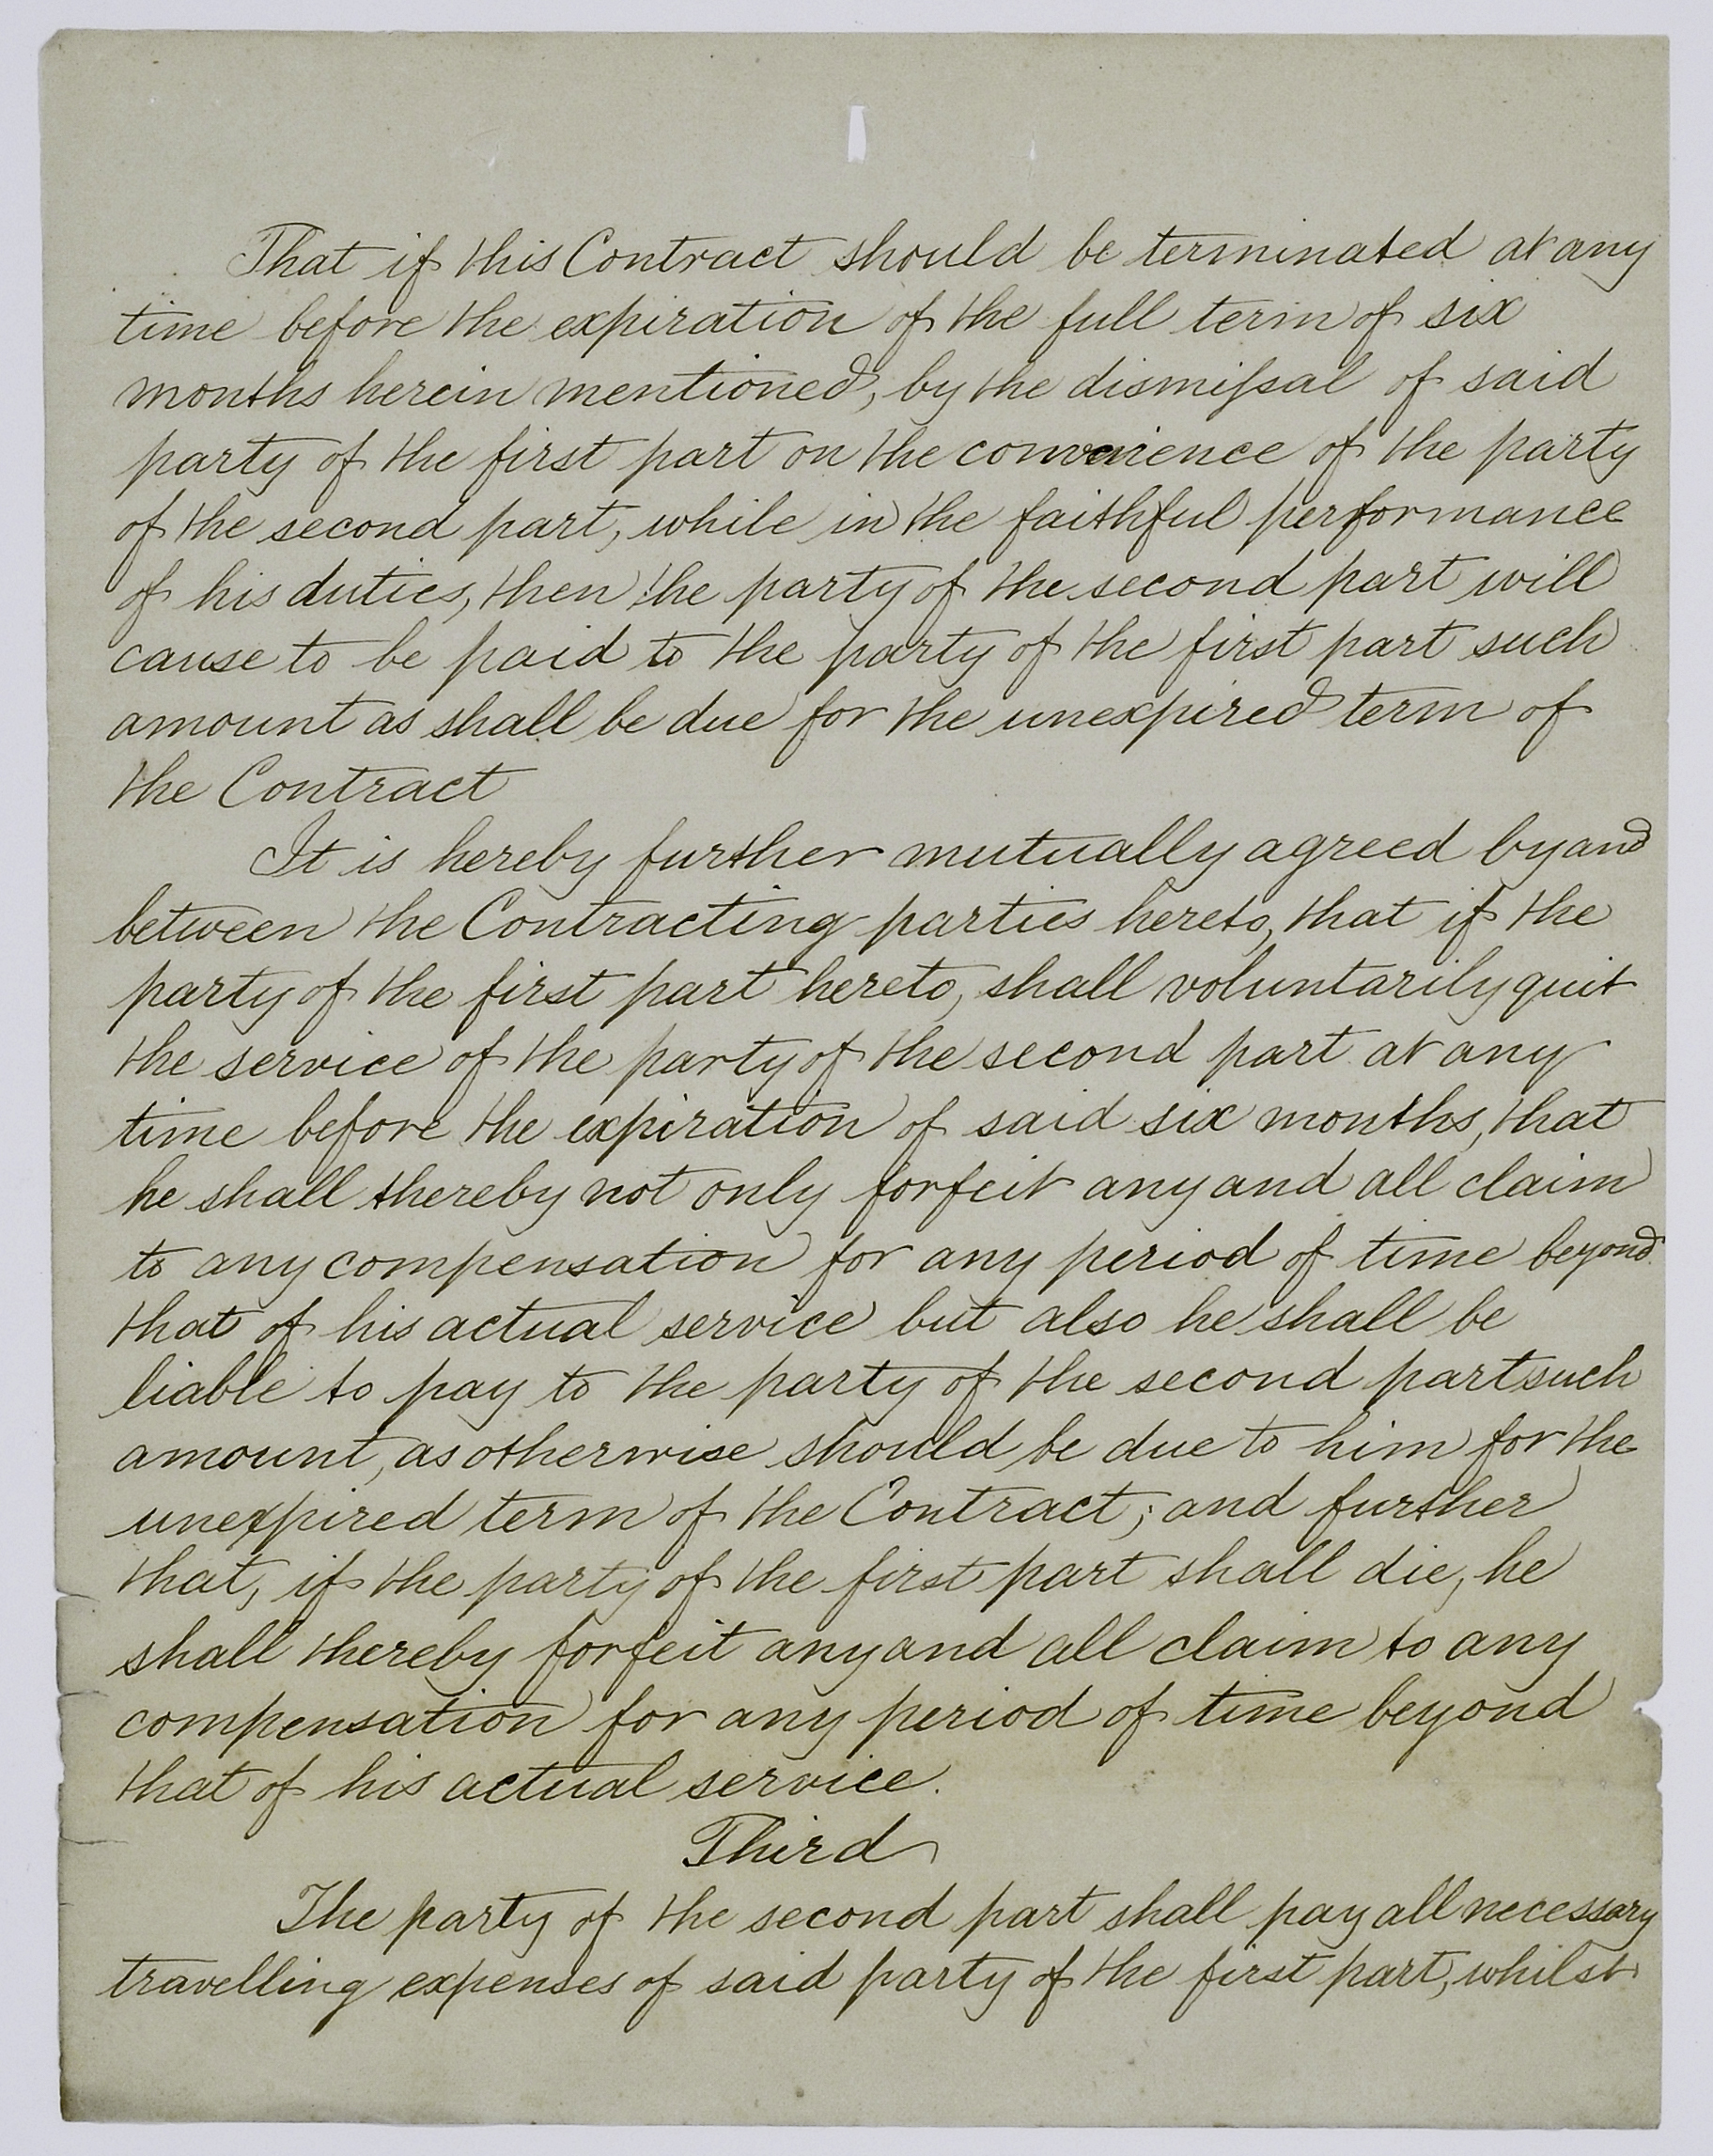 That if this Contract should be terminated at any
time before the expiration of the full term of six
months herein mentioned, by the dismissal of said
party of the first part on the convenience of the party
of the second part, while in the faithful performance
of his duties, then the party of the second part will
cause to be paid to the party of the first part such
amount as shall be due for the unexpired term of
the Contract
It is hereby further mutually agreed by and
between the Contracting parties hereto, that if the
party of the first part hereto, shall voluntarily quit
the service of the party of the second part at any
time before the expiration of said six months, that
he shall thereby not only forfeit any and all claim
to any compensation for any period of time beyond
that of his actual service but also he shall be
liable to pay to the party of the second part such
amount, as otherwise should be due to him for the
unexpired term of the Contract; and further
that, if the party of the first part shall die, he
shall thereby forfeit any and all claim to any
compensation for any period of time beyond
that of his actual service.
Third
The party of the second part shall pay all necessary
travelling expenses of said party of the first part, whilst